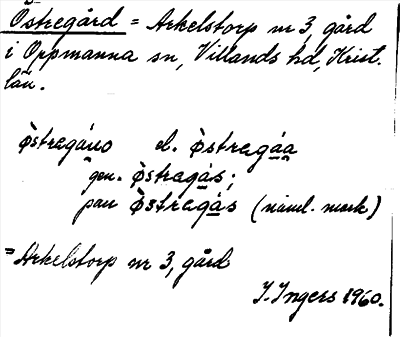 Östregård = Arkelstorp nr 3, gård
i Oppmanna sn, Villands hd, Krist.
län.
östregáno el. östregáa
gen. östragás;
pau östregás (näml. mark)
= Arkelstorp nr 3, gård
I. Ingers 1960.